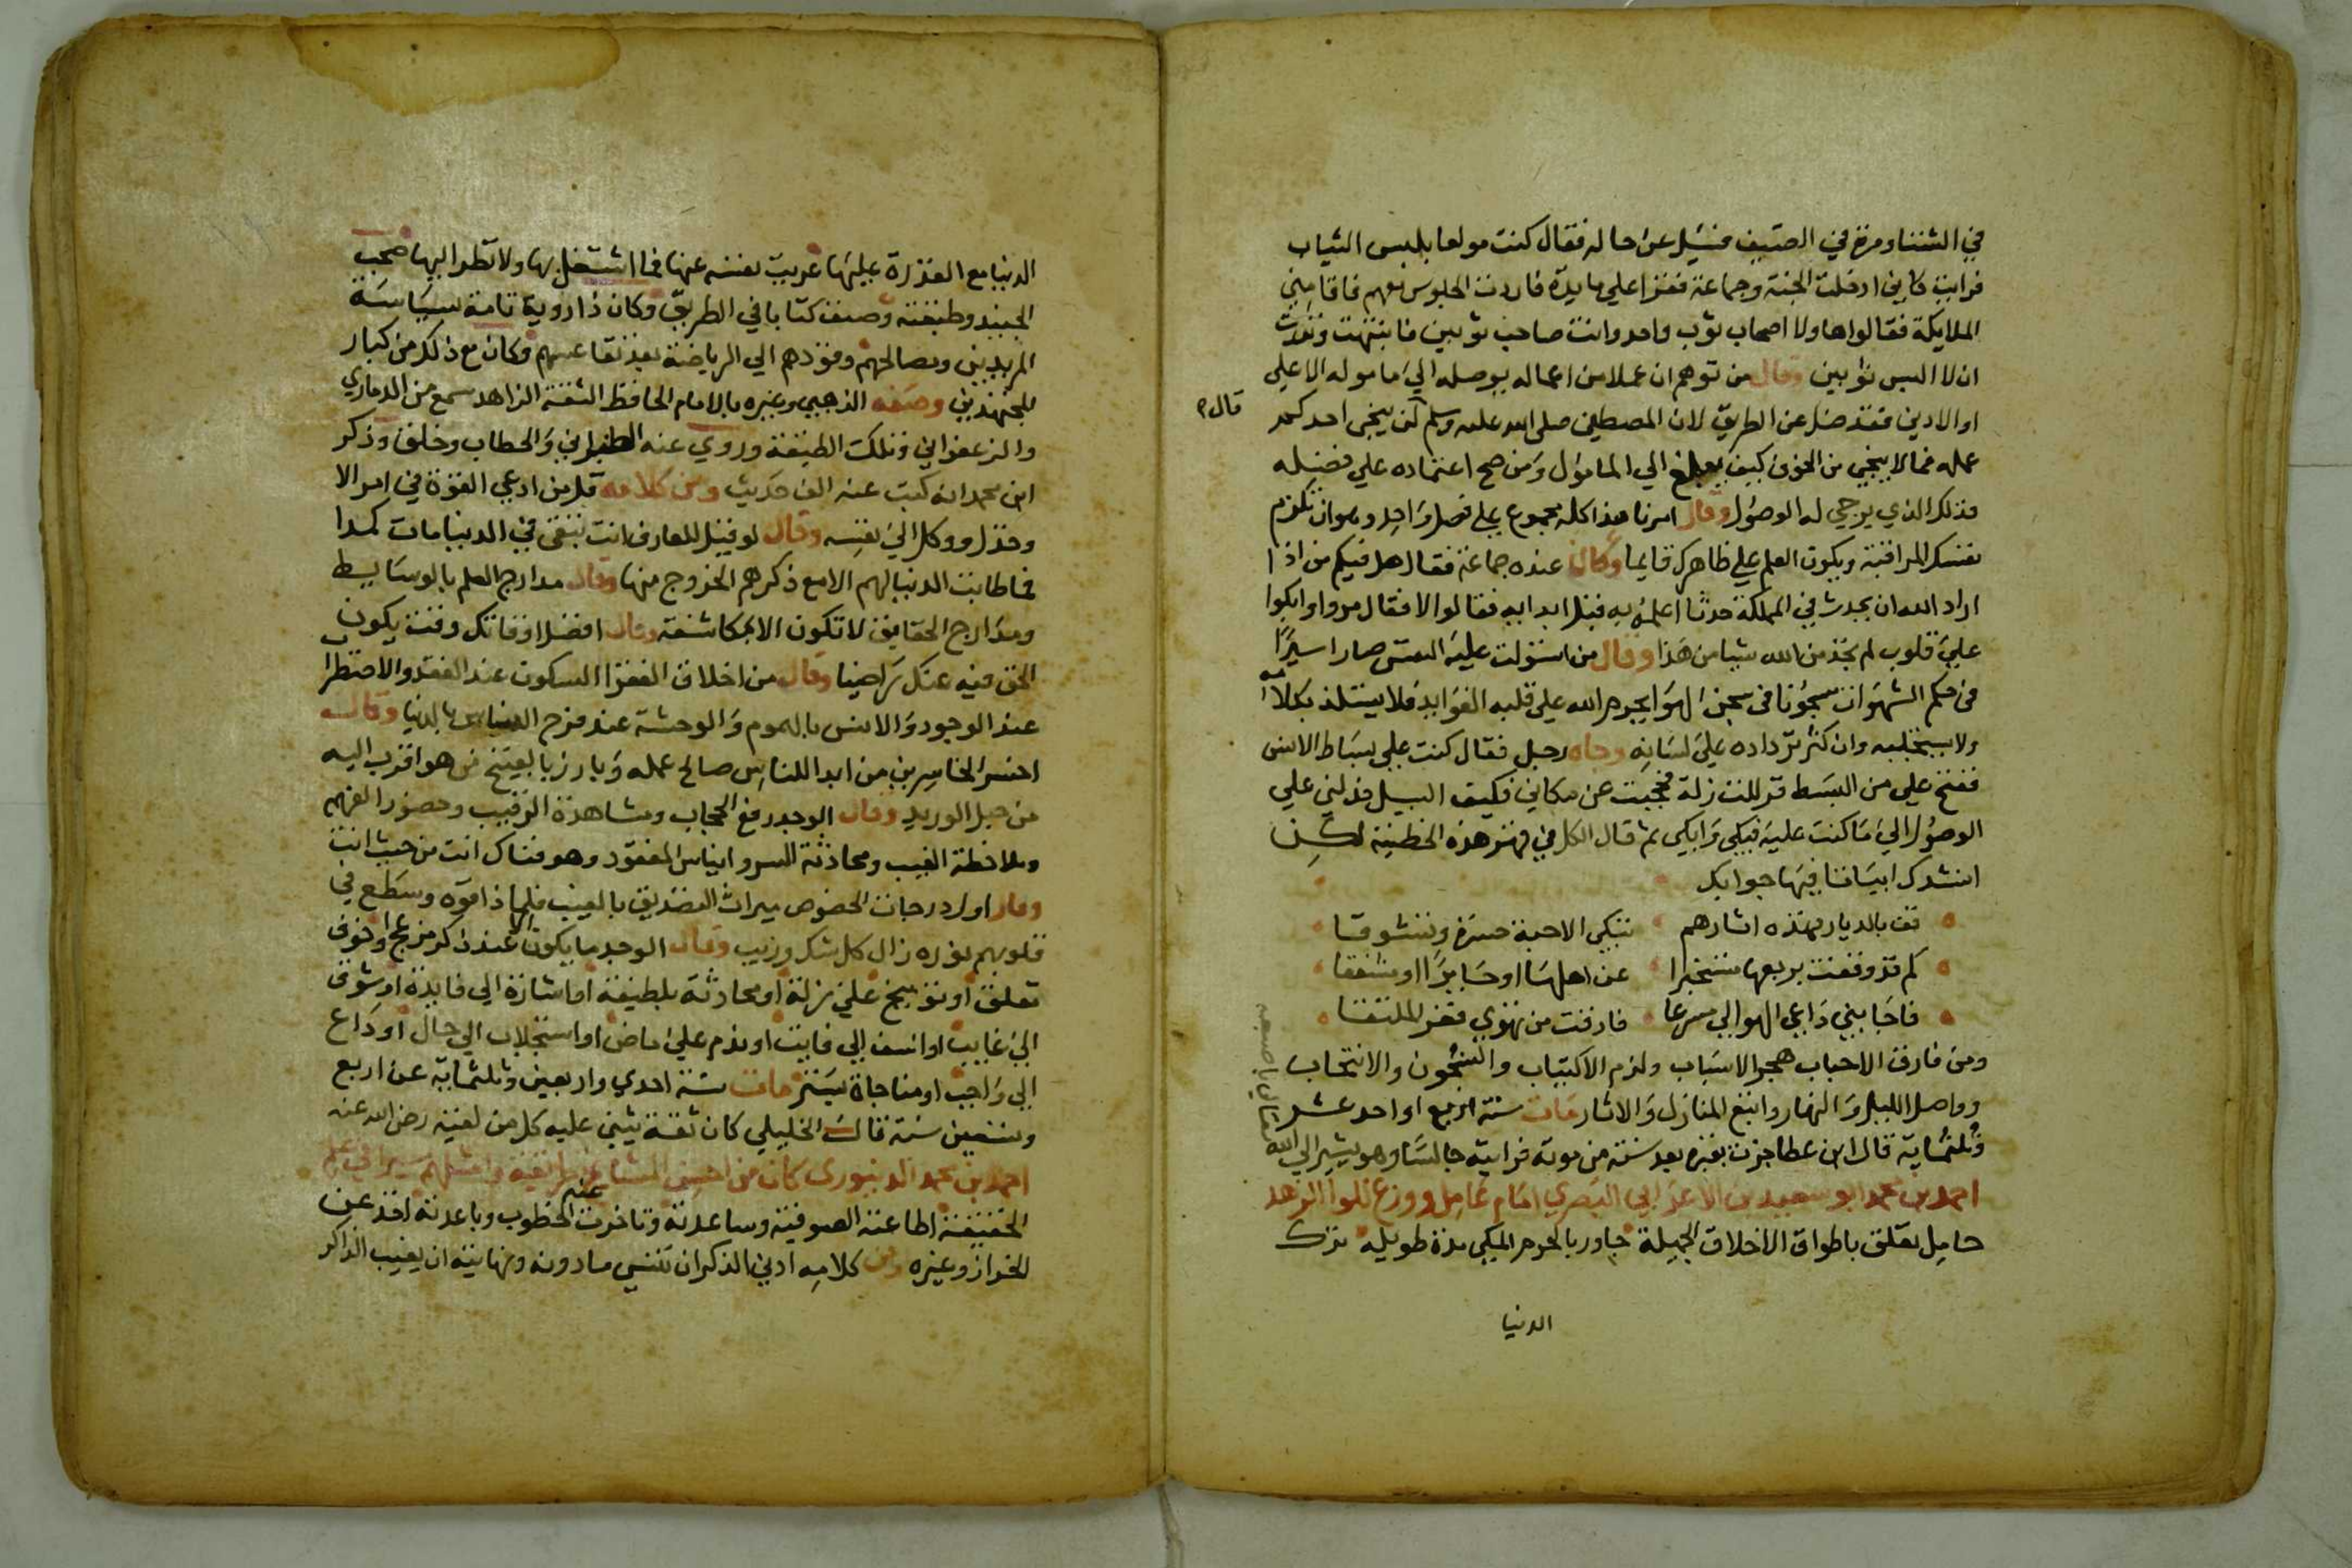 في الشتا ومرة في الصيف فسئل عن حاله فقال كنت مولعا بلبس الثياب
فرايت كاني ادخلت الجنة وجماعة فقرا علي مايدة فاردت الجلوس معهم فاقامني
الملايكة فقالوا هاولا اصحاب ثوب واحد وانت صاحب ثوبين فانتبهت ونذرت
ان لا البس ثوبين وقال من توهم ان عملا من اعماله يوصله الي مامو له الاعلي
او الادني فقد ضل عن الطريق لان المصطفي صلى الله عليه وسلم لن ينجي احدكم
قال
عمله فما لا ينجي من الخوف كيف يبلغ الي المامول ومن صح اعتماده علي فضله
فذلك الذي يرجي له الوصول وقال امرنا هذا كله مجموع علي فصل واحد وهو ان تلزم
نفسك المراقبة ويكون العلم علي ظاهرك قايما وكان عنده جماعة فقال هل فيكم من اذا
اراد الله ان يحدث في المملكة حدثا اعلمه به قبل ابدايه فقالوا لا فقال مروا وابكوا
علي قلوب لم تجد من الله شيا من هذا وقال من استولت عليه النفس صار اسيرا
في حكم الشهوات مسجونا في سجن الهوا يحرم الله علي قلبه الفوايد فلا يستلذ بكلامه
ولا يستحليه وان كثر ترداده علي لسانه وجاه رجل فقال كنت علي بساط الانس
ففتح علي من البسط فزللت زلة فحجبت عن مكاني فكيف السبيل فدلني علي
الوصول الي ما كنت عليه فبكي وابكي ثم قال الكل في قهر هذه الخطية لكن
انشدك ابياتا فيها جوابك
قف بالديار فهذه اثارهم تبكي الاحبة حسرة وتشوقا
كم قد وقفت بربعها مستخبرا عن اهلها او حايرا او مشفقا
فاجابني داعي الهوا لي مسرعا فارقت من تهوي فعز الملتقا
ومن فارق الاحباب هجر الاسباب ولزم الاكتياب والشجون والانتحاب
وواصل الليل والنهار واتبع المنازل والاثار مات سنة اربع او احد عشر
وثلثماية قال ابن عطا جزت بقبره بعد سنة من موته فرايته جالسا وهو يشير الي الله
تعالي باصبعه
احمد بن محمد ابو سعيد بن الاعرابي البصري امام عامل وورع للوا الزهد
حامل تعلق باطواق الاخلاق الجميلة جاور بالحرم المكي مدة طويلة ترك
الدنيا
الدنيا مع القدرة عليها غريب نفسه عنها فما اشتغل بها ولا نظر اليها صحب
الجنيد وطبقته وصنف كتابا في الطريق وكان ذا روية تامة سياسة
المريدين ومصالحهم وقودهم الي الرياضة بعد تقاعسهم وكان مع ذلك من كبار
المجتهدين وصفه الذهبي وغيره بالامام الحافظ الثقة الزاهد سمع من الدماري
والزعفراني وتلك الطبقة وروي عنه الطبراني والخطاب وخلف وذكر
ابن محمد انه كتب عنه الف حديث ومن كلامه قل من ادعي القوة في امر الا
وخذل ووكل الي نفسه وقال لو قيل للعارف انت تبقي في الدنيا مات كمدا
فما طابت الدنيا لهم الا مع ذكرهم الخروج منها وقال مدارج العلم بالوسايط
ومدارج الحقايق لا تكون الا بمكاشفة وقال افضل اوقاتك وقت يكون
الحق فيه عنك راضيا وقال من اخلاق الفقرا السكون عند الفقد والاضطراب
عند الوجود والانس بالهموم والوحشة عند فرح الناس بالدنيا وقال
اخسر الخاسرين من ابدا للناس صالح عمله وبارز بالقبيح من هو اقرب اليه
من حبل الوريد وقال الوجد رفع الحجاب ومشاهدة الرقيب وحضور الفهم
وملاحظة الغيب ومحادثة السر وايناس المفقود وهو فناك انت من حيث انت
وقال اول درجات الخصوص ميراث التصديق بالغيب فلما ذاقوه وسطع في
قلوبهم نوره زال كل شك وريب وقال الوجد ما يكون الا عند ذكر مزعج او خوف
مقلق او توبيخ علي زلة او محادثة بلطيفة او اشارة الي فايدة او شوق
الي غايب او اسف الي فايت او ندم علي ماض او استجلاب الي حال او داع
الي واجب او مناجاة بسر مات سنة احدي واربعين وثلثماية عن اربع
وتسعين سنة قال الخليلي كان ثقة يثني عليه كل من لقيه رضي الله عنه
احمد بن محمد الدينوري كان من احسن المشايخ طريقة وامثلهم سيرا في علم
الحقيقة اطاعته الصوفية وساعدته وتاخرت عنه الخطوب وباعدته اخذ عن
الخراز وغيره ومن كلامه ادني الذكر ان تنسي ما دونه ونهايته ان يغيب الذاكر